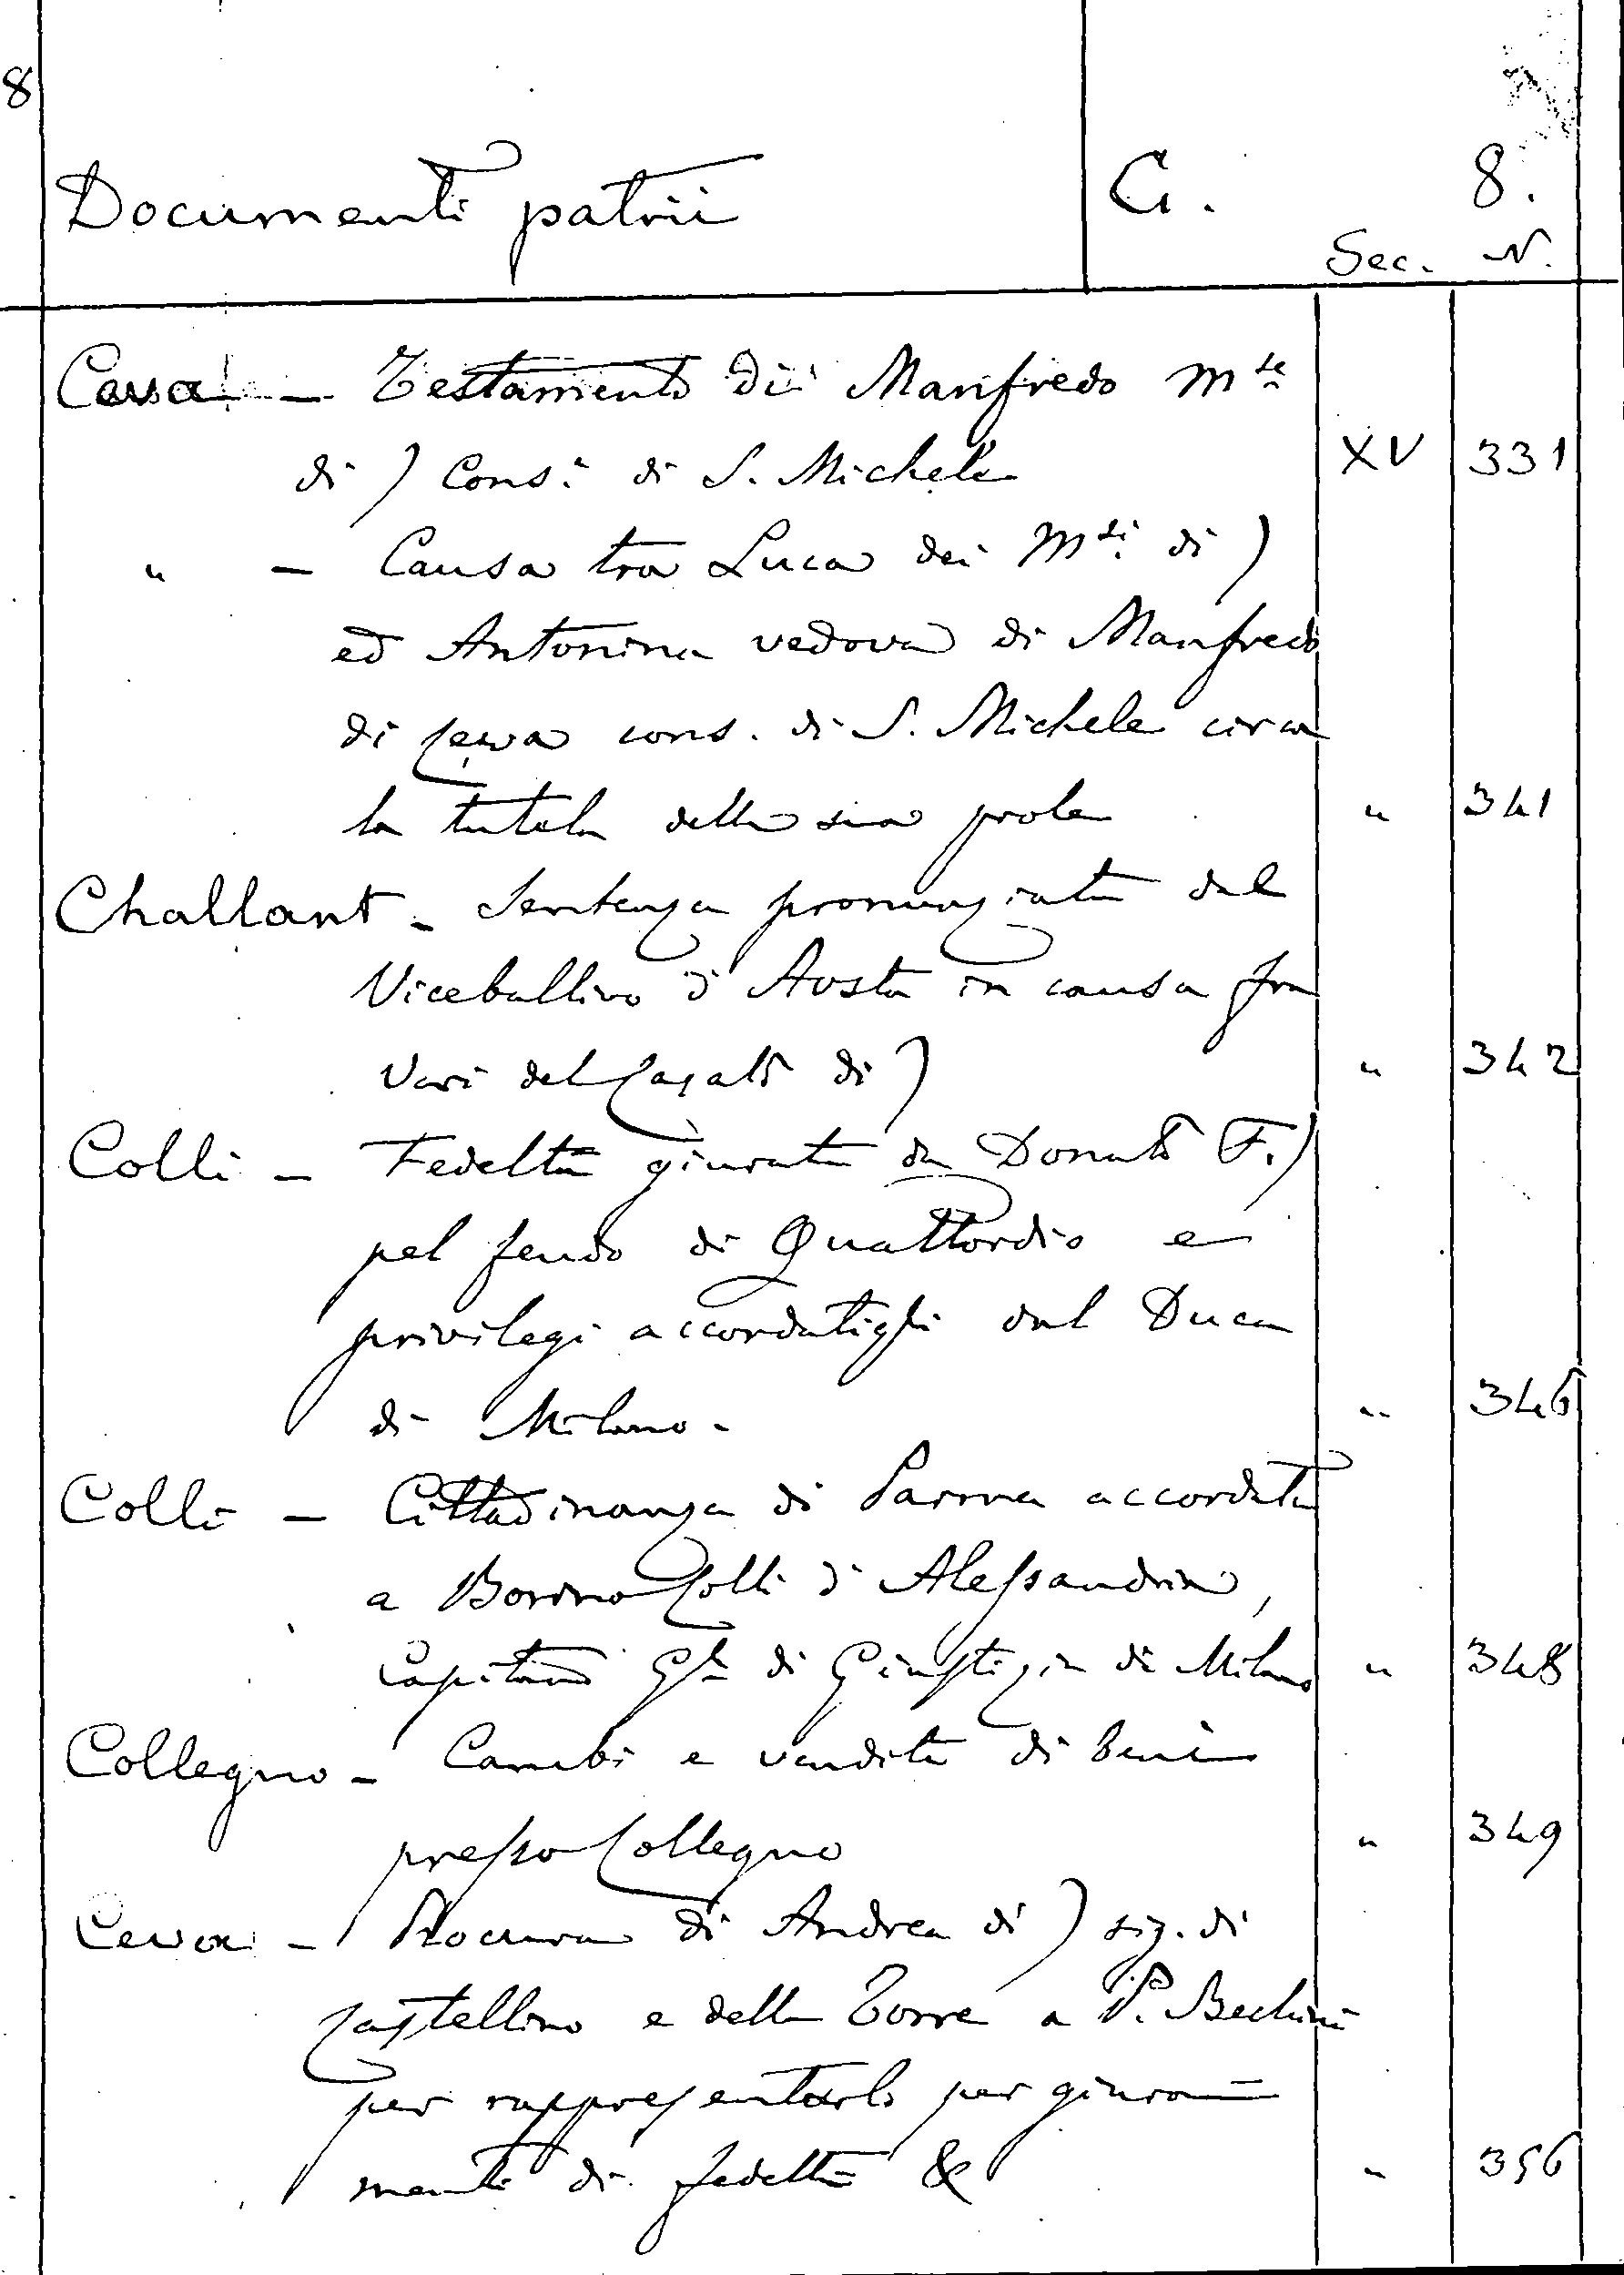 8
Documenti patrii C. 8.
Sec. N.
Ceva - Testamento di Manfredo M.se
di ) Cons.e di S. Michele XV 331
" - Causa tra Luca dei M.si di )
ed Antonina vedova di Manfredo
di Ceva cons. di S. Michele circa
la tutela della sua prole " 341
Challant - Sentenza pronunziata dal
Viceballivo d'Aosta in causa fra
vari del Casato di ) " 342
Colli - Fedeltà giurata da Donato F. )
pel feudo di Quattordio e
privilegi accordatigli dal Duca
di Milano - " 346
Colli - Cittadinanza di Parma accordata
a Bonino Colli d'Alessandria,
Capitano G.le di Giustizia di Milano " 348
Collegno - Cambi e vendita di beni
presso Collegno " 349
Ceva - Procura di Andrea di ) sig. di
Castellino e della Torre a P.
per rappresentarlo per giura=
menti di fedeltà & " 356